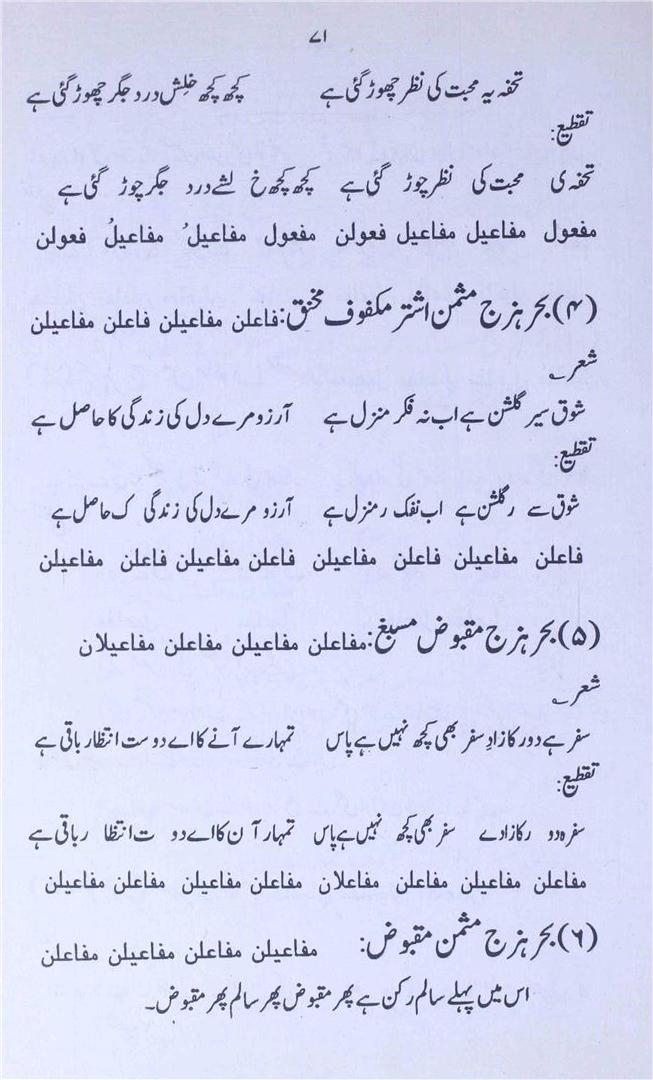 ۷۱
تحفہ یہ محبت کی نظر چھوڑ گئی ہے کچھ کچھ خلِش درد جگر چھوڑ گئی ہے
تقطیع:
تحفہ ی محبت کی نظر چوڑ گئی ہے کچھ کچھ خ لشے درد جگر چوڑ گئی ہے
مفعول مفاعیل مفاعیل فعولن مفعول مفاعیلُ مفاعیلُ فعولن
(۴) بحر ہزج مثمن اشتر مکفوف مخنق: فاعلن مفاعیلن فاعلن مفاعیلن
شعر؎
شوق سیر گلشن ہے اب نہ فکر منزل ہے آرزو مرے دل کی زندگی کا حاصل ہے
تقطیع:
شوق سے رگلشن ہے اب نفک رمنزل ہے آرزو مرے دل کی زندگی ک حاصل ہے
فاعلن مفاعیلن فاعلن مفاعیلن فاعلن مفاعیلن فاعلن مفاعیلن
(۵) بحر ہزج مقبوض مسبغ: مفاعلن مفاعیلن مفاعلن مفاعیلان
شعر؎
سفر ہے دور کا زادِ سفر بھی کچھ نہیں ہے پاس تمہارے آنے کا اے دوست انتظار باقی ہے
تقطیع:
سفر ہ دو رکا زادے سفر بھی کچھ نہیں ہے پاس تمہار آن کا اے دو ت انتظا رباقی ہے
مفاعلن مفاعیلن مفاعلن مفاعلان مفاعلن مفاعیلن مفاعلن مفاعیلن
(۶) بحر ہزج مثمن مقبوض: مفاعیلن مفاعلن مفاعیلن مفاعلن
اس میں پہلے سالم رکن ہے پھر مقبوض پھر سالم پھر مقبوض۔